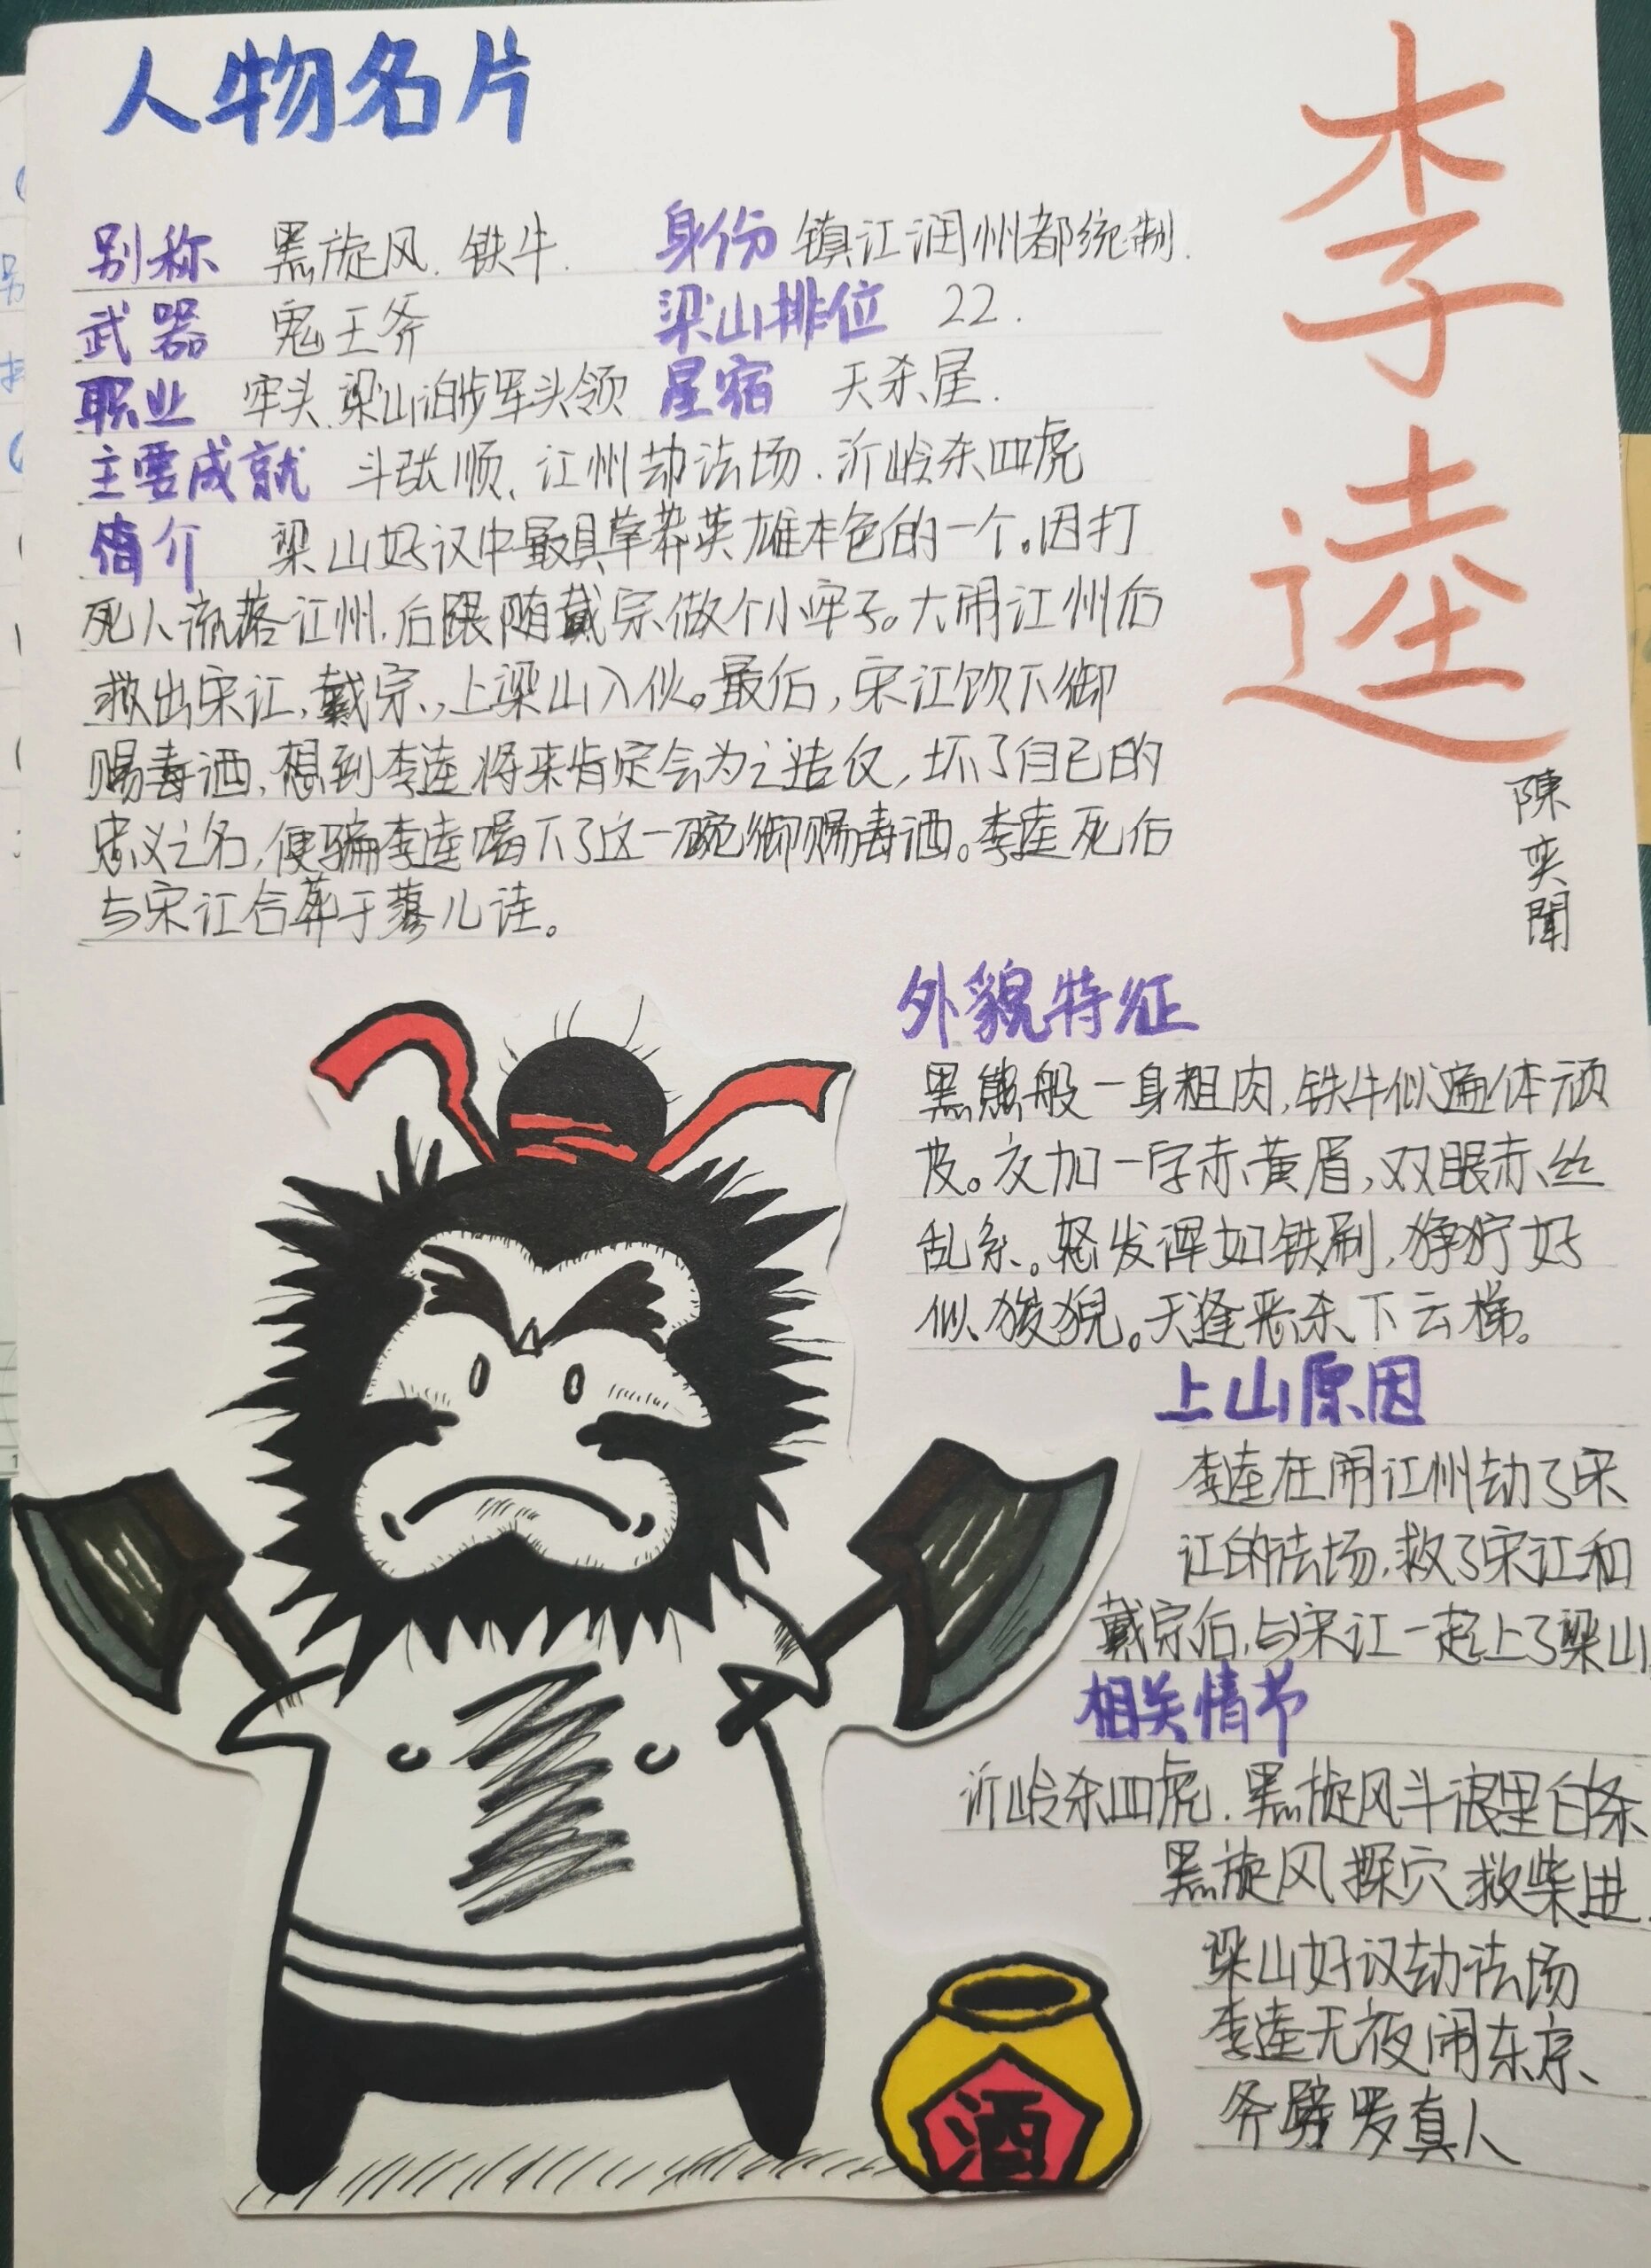 人物名片
李逵
陳奕聞
别称 黑旋风.铁牛. 身份 镇江润州都统制.
武器 鬼王斧 梁山排位 22.
职业 牢头.梁山泊步军头领 星宿 天杀星.
主要成就 斗张顺、江州劫法场.沂岭杀四虎
简介 梁山好汉中最具草莽英雄本色的一个。因打
死人流落江州,后跟随戴宗做个小牢子。大闹江州后
救出宋江,戴宗,上梁山入伙。最后,宋江饮下御
赐毒酒,想到李逵将来肯定会为之造反,坏了自己的
忠义之名,便骗李逵喝下了这一碗御赐毒酒。李逵死后
与宋江合葬于蓼儿洼。
外貌特征
黑熊般一身粗肉,铁牛似遍体顽
皮。交加一字赤黄眉,双眼赤丝
乱系。怒发浑如铁刷,狰狞好
似狻猊。天蓬恶杀下云梯。
上山原因
李逵在闹江州劫了宋
江的法场,救了宋江和
戴宗后,与宋江一起上了梁山
相关情节
沂岭杀四虎.黑旋风斗浪里白条、
黑旋风探穴救柴进.
梁山好汉劫法场
李逵元夜闹东京、
斧劈罗真人
酒